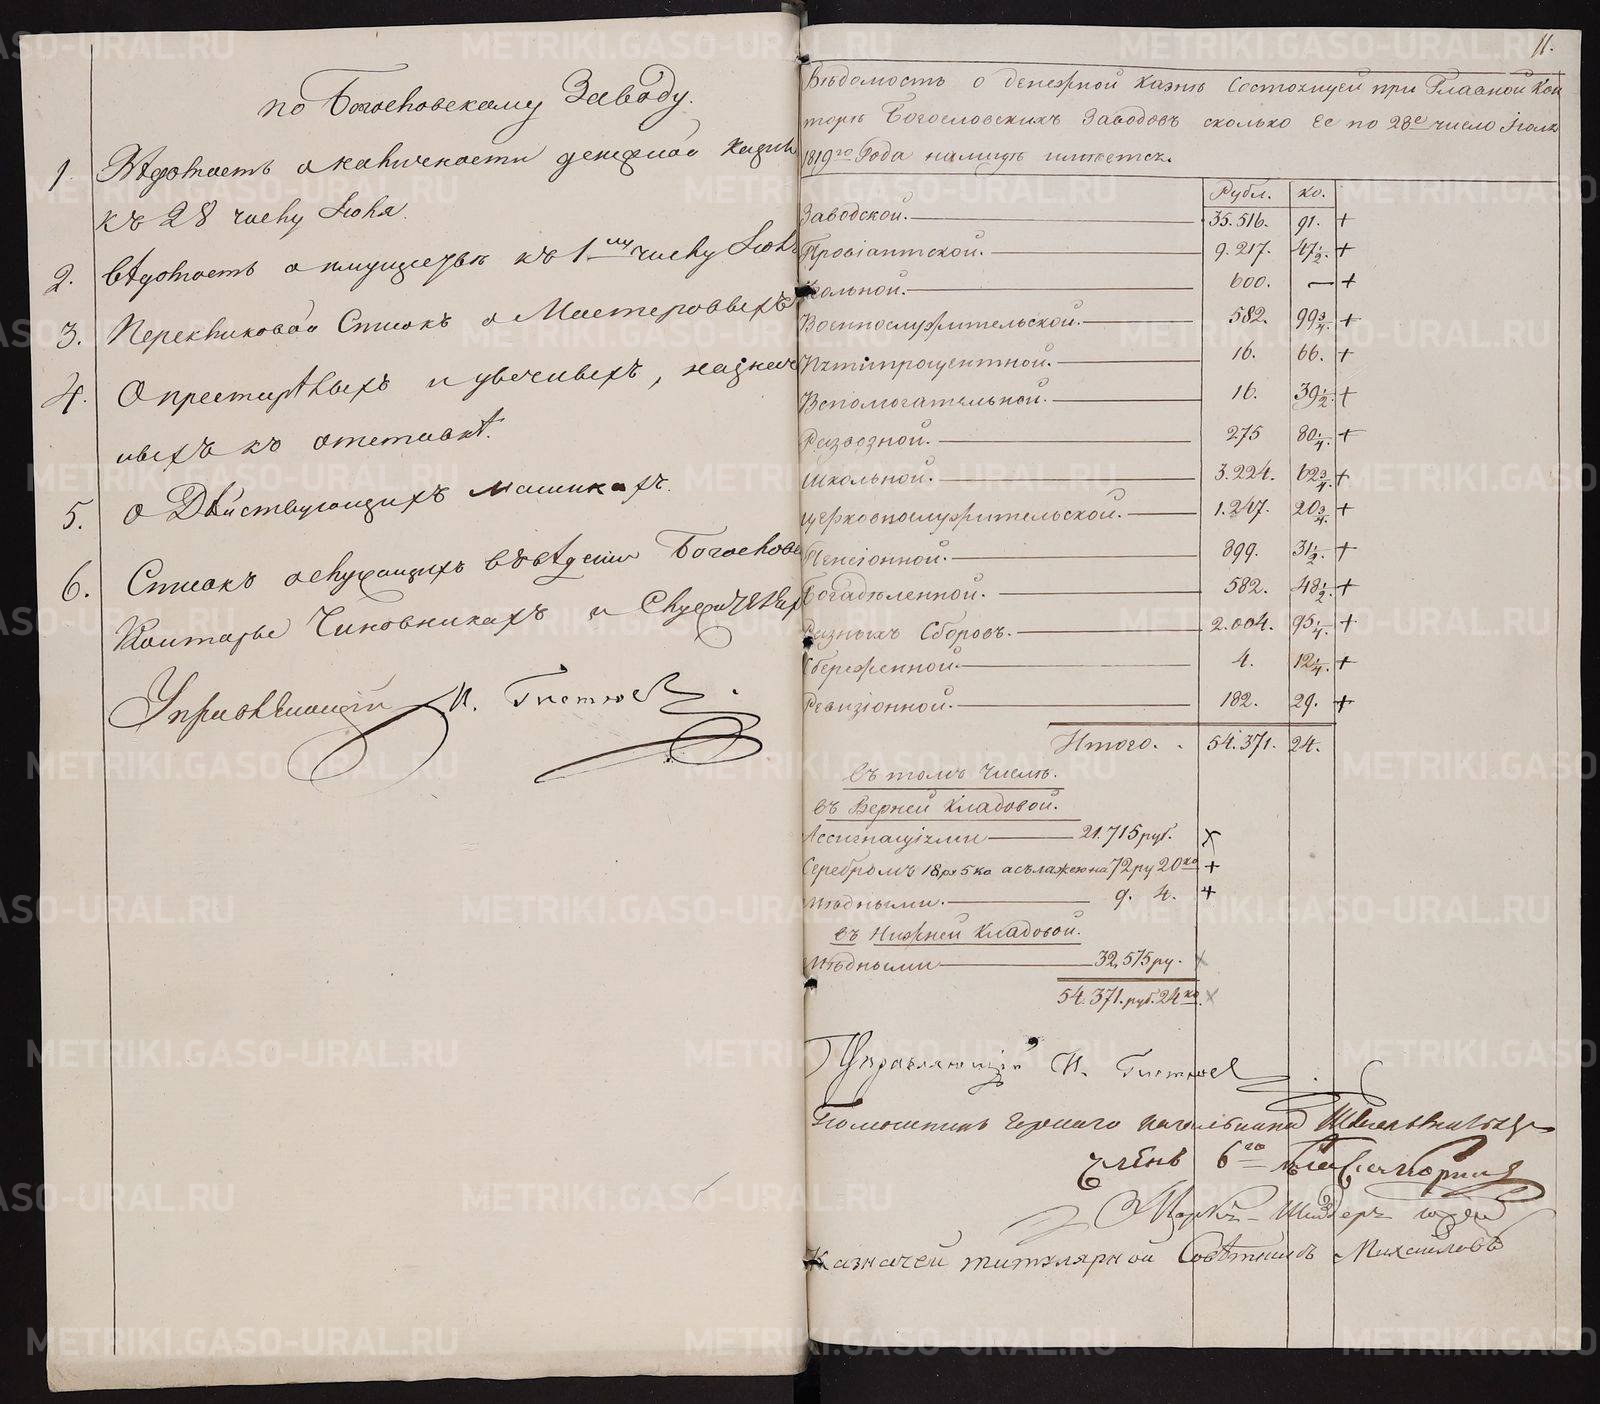 по Богословскому Заводу.
1. Вѣдомость о количествѣ денежной казны
къ 28 числу Июня.
2. Вѣдомость о имуществѣ къ 1му числу Июня
3. Перекличковой Списокъ о Мастеровыхъ
4. О престарѣлыхъ и увечныхъ, назначен
ныхъ къ отставкѣ.
5. О Дѣйствующихъ машинахъ.
6. Списокъ о служащихъ въ вѣдении Богословс
Конторы Чиновникахъ и Служителяхъ
Управляющій И.
11.
Вѣдомость о денежной казнѣ состоящей при Главной Кон
торѣ Богословскихъ Заводовъ сколько ее по 28е число Iюня
1819го Года налицо имѣется.
Рубл. ко.
Заводской. 35.516. 91. +
Провіантской. 9.217. 47½. +
Школьной. 600. — +
Военнослужительской. 582. 99¾. +
Пятипроцентной. 16. 66. +
Вспомогательной. 16. 39½. +
Развозной. 275 80¼. +
Школьной. 3.224. 62¾. +
Церковнослужительской. 1.247. 20¾. +
Пенсіонной. 899. 31½. +
Богадѣленной. 582. 48½. +
Разныхъ Сборовъ. 2.004. 95¼. +
Сбереженной. 4. 12¼. +
Ревизіонной. 182. 29. +
Итого. . 54.371. 24.
въ томъ числѣ.
въ Верней Кладовой.
Ассигнаціями 21.715 руб. х
Серебромъ 18 ру 5 ко 72 ру 20 ко +
Мѣдными. 9. 4. +
въ Нижней Кладовой.
Мѣдными 32,575 ру. х
54.371. руб. 24 ко. х
Управляющій И.
Помошникъ Горнаго Начальника
Членъ 6го
Маркъ-Шейдеръ
Казначей титулярной Совѣтникъ Михайловъ
METRIKI.GASO-URAL.RU